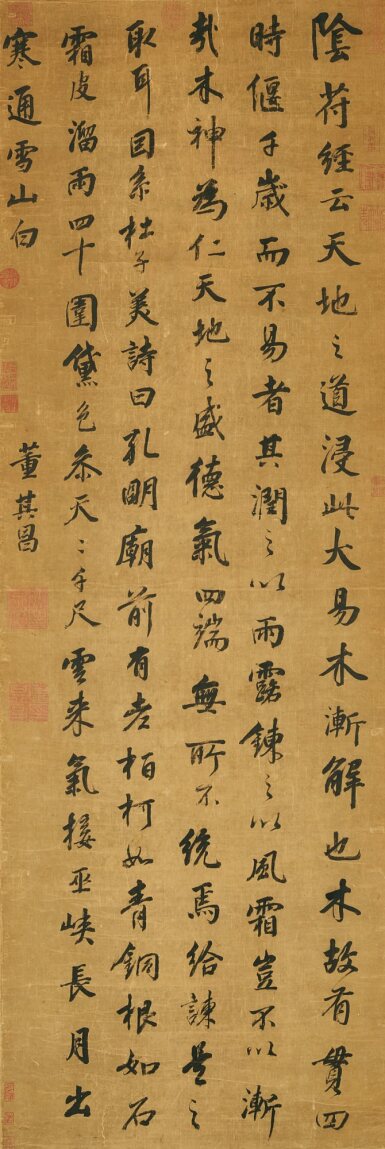 陰符經云天地之道浸此大易木漸解也木故有貫四
時偃千歲而不易者其潤之以雨露鍊之以風霜豈不以漸
哉木神為仁天地之盛德氣四端無所不統焉給諫是之
取耳因系杜子美詩曰孔明廟前有老柏柯如青銅根如石
霜皮溜雨四十圍黛色參天二千尺雲來氣接巫峽長月出
寒通雪山白
董其昌